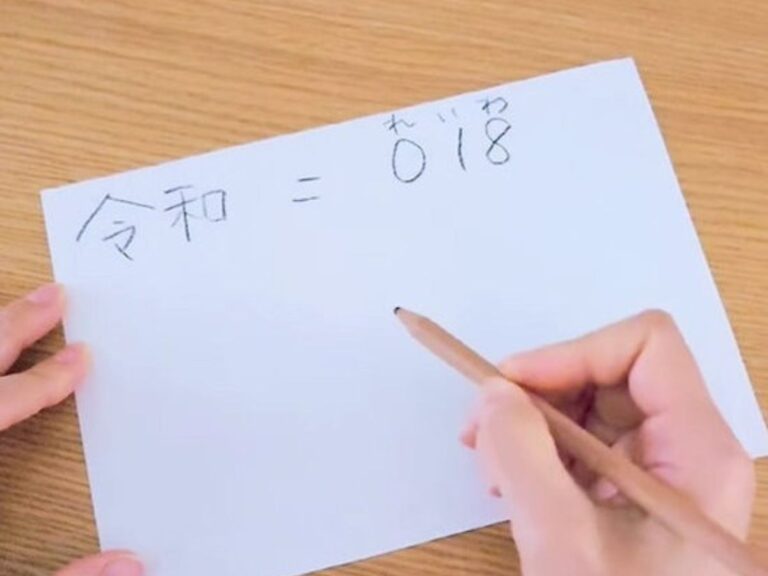 れいわ
令和 = 018